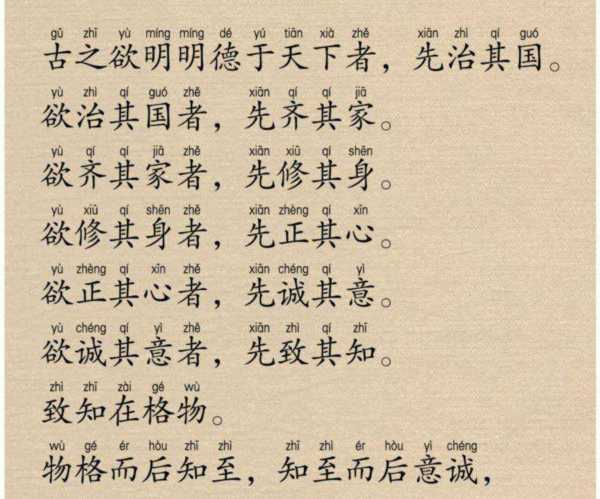 gǔ zhī yù míng míng dé yú tiān xià zhě xiān zhì qí guó
古之欲明明德于天下者，先治其国。
yù zhì qí guó zhě xiān qí qí jiā
欲治其国者，先齐其家。
yù qí qí jiā zhě xiān xiū qí shēn
欲齐其家者，先修其身。
yù xiū qí shēn zhě xiān zhèng qí xīn
欲修其身者，先正其心。
yù zhèng qí xīn zhě xiān chéng qí yì
欲正其心者，先诚其意。
yù chéng qí yì zhě xiān zhì qí zhī
欲诚其意者，先致其知。
zhì zhī zài gé wù
致知在格物。
wù gé ér hòu zhī zhì zhī zhì ér hòu yì chéng
物格而后知至，知至而后意诚，